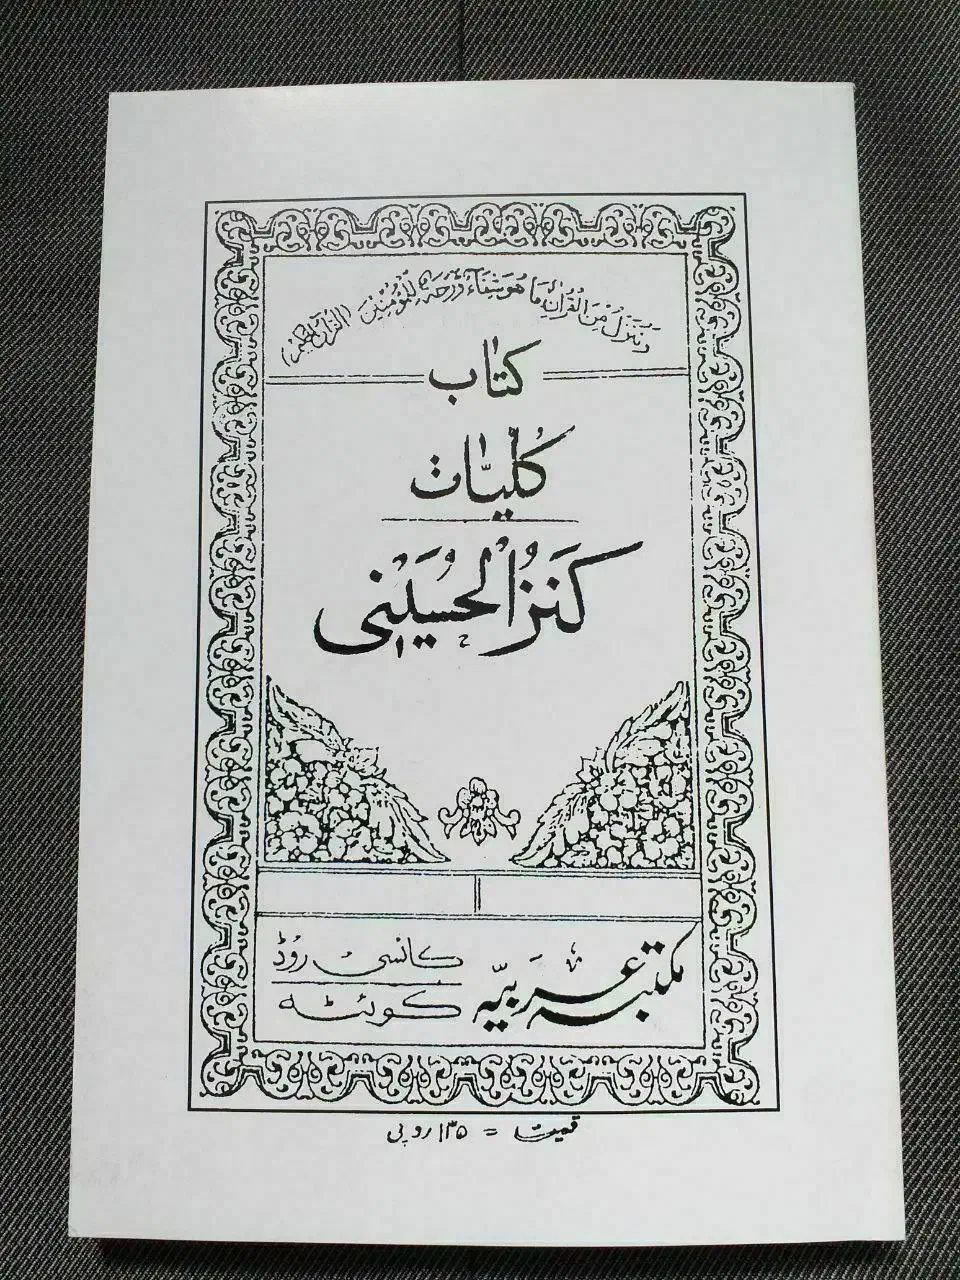 وَنُنَزِّلُ مِنَ الْقُرْآنِ مَا هُوَ شِفَاءٌ وَّرَحْمَةٌ لِّلْمُؤْمِنِيْنَ (القرآن الحکیم)
کتاب
کُلیّات
کَنزُالْحُسَیْنِی
مکتبہ عربیّہ
کانسی رُوڈ
کوئٹہ
قیمت = ۱۳۵ روپی